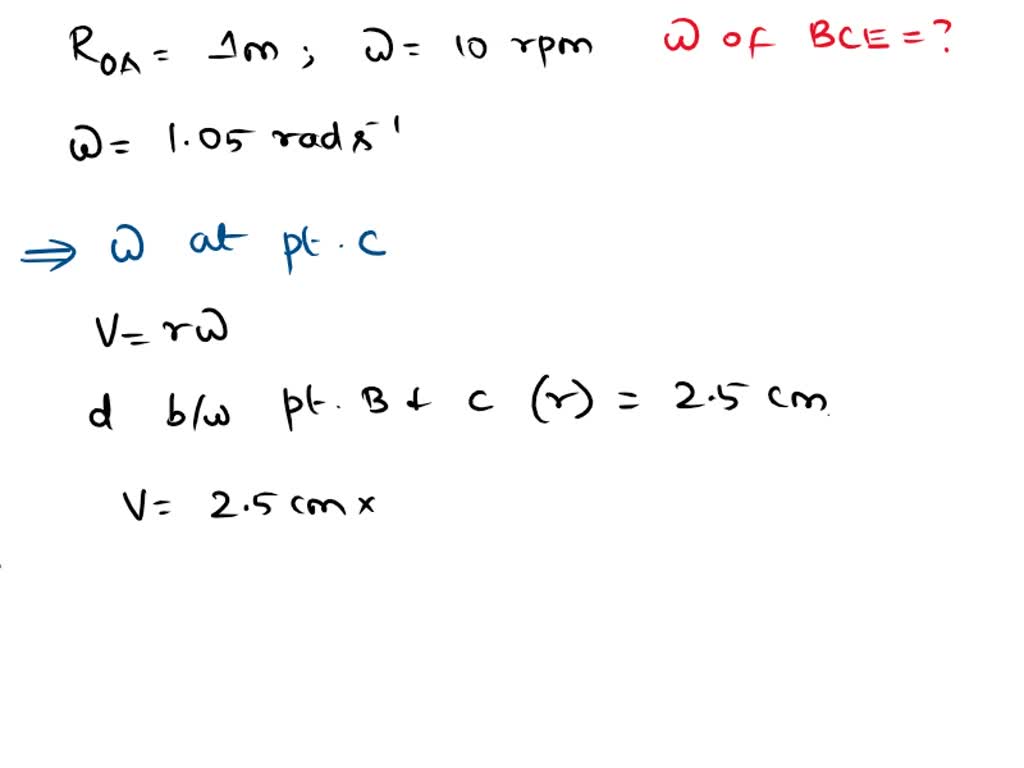 R_OA = 1m ; ω = 10 rpm ω of BCE = ?
ω = 1.05 rad s⁻¹
⇒ ω at pt. C
V = rω
d b/w pt. B & C (r) = 2.5 cm
V = 2.5 cm ×